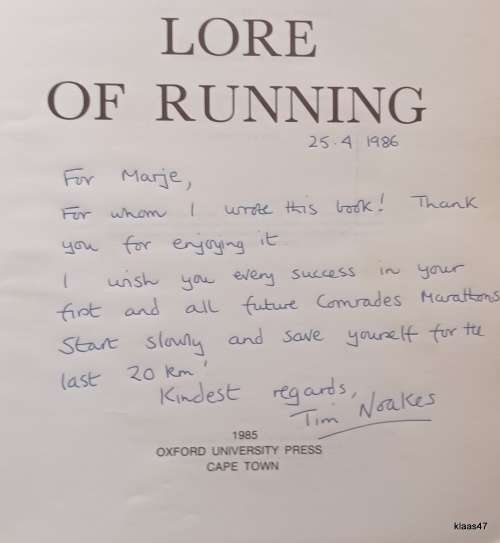 LORE
OF RUNNING
25.4 1986
For Marje,
For whom I wrote this book! Thank
you for enjoying it
I wish you every success in your
first and all future Comrades Marathons
Start slowly and save yourself for the
last 20 km!
Kindest regards,
Tim Noakes
1985
OXFORD UNIVERSITY PRESS
CAPE TOWN
klaas47